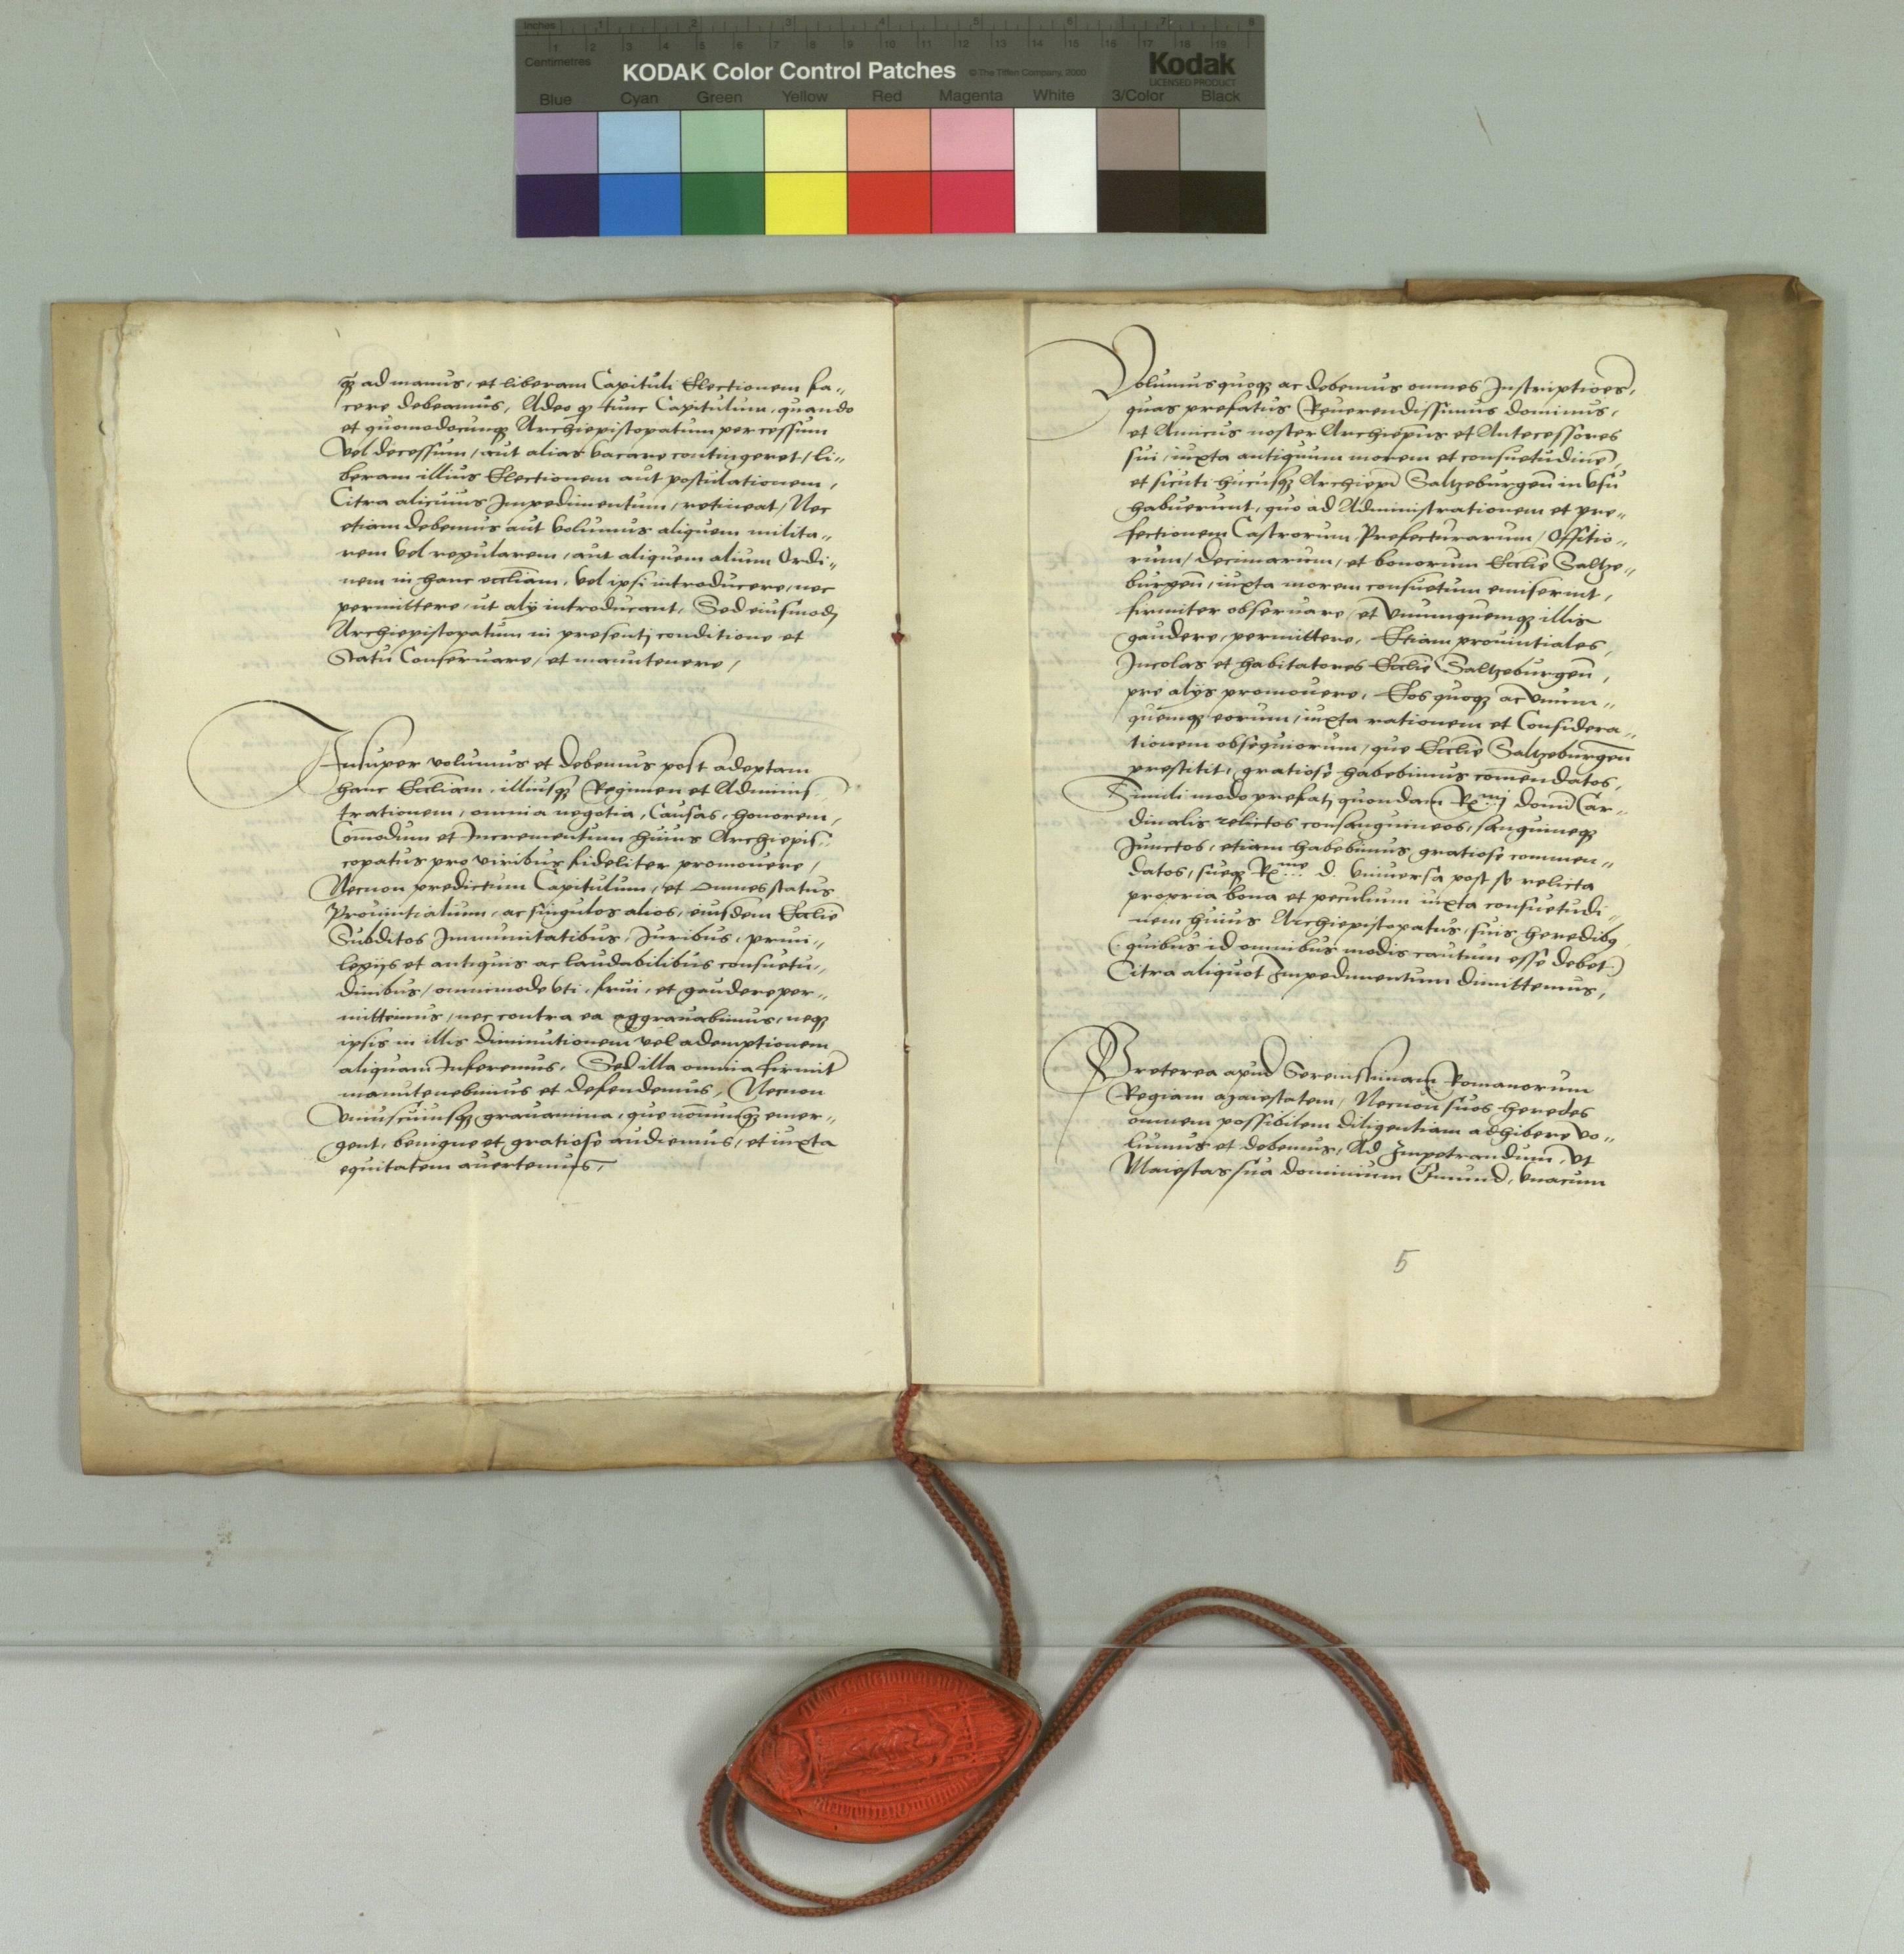 Inches 1 2 3 4 5 6 7 8
1 2 3 4 5 6 7 8 9 10 11 12 13 14 15 16 17 18 19
Centimetres
KODAK Color Control Patches © The Tiffen Company, 2000 Kodak
LICENSED PRODUCT
Blue Cyan Green Yellow Red Magenta White 3/Color Black
ad manus, et liberam Capituli Electionem fa„
cere debeamus, Adeo q tunc Capitulum, quando
et quomodocunqȝ Archiepiscopatum per cessum
vel decessum / aut alias vacare contingeret / li„
beram illius Electionem aut postulationem,
Citra alicuius Impedimentum / retineat / Nec
etiam debemus aut volumus aliquem milita„
rem vel regularem / aut aliquem alium Ordi„
nem in hanc eccliam, vel ipsi introducere, nec
permittere, ut alij introducant, Sed eiusmodj
Archiepiscopatum in presentj conditione et
Statu Conseruare, et manutenere,
Insuper volumus et debemus post adeptam
hanc Eccliam, illiusqȝ Regimen et Adminis„
trationem, omnia negotia, Causas, honorem,
Comodum et Incrementum huius Archiepis„
copatus pro viribus fideliter promouere,
Necnon predictum Capitulum, et Omnes status
Prouintialium, ac singulos alios, eiusdem Ecclie
Subditos Immunitatibus, Juribus, priui„
legijs et antiquis ac laudabilibus consuetu„
dinibus / omnimode vti, frui, et gaudere per„
mittemus, nec contra ea aggrauabimus, neqȝ
ipsis in illis diminutionem vel ademptionem
aliquam Inferemus, Sed illa omnia firmit
manutenebimus et defendemus, Necnon
vniuscuiusqȝ grauamina, que emer„
gent, benigne et gratiose audiemus, et iuxta
equitatem auertemus,
Volumus quoqȝ ac debemus omnes Inscriptiones,
quas prefatus Reuerendissimus dominus,
et Amicus noster Archiepus et Antecessores
sui, iuxta antiquum morem et consuetudine,
et sicuti hucusqȝ Archiepi Saltzeburgen in vsu
habuerunt, quo ad Administrationem et pre„
fectionem Castrorum Prefecturarum, Offitio„
rum, decimarum, et bonorum Ecclie Saltze„
burgen, iuxta morem consuetum emiserint,
firmiter obseruare, et vnumquemqȝ illis
gaudere, permittere, Etiam prouintiales,
Incolas et habitatores Ecclie Saltzeburgen,
pre alijs promouere, Eos quoqȝ ac vnum„
quemqȝ eorum, iuxta rationem et Considera„
tionem obsequiorum, que Ecclie Saltzeburgen
prestitit, gratiose habebimus comendatos,
Simili modo prefatj quondam Rmj domi Car„
dinalis relictos consanguineos, sanguineqȝ
Junctos, etiam habebimus gratiose commen„
datos, sueqȝ Rme d. vniuersa post se relicta
propria bona et peculium iuxta consuetudi„
nem huius Archiepiscopatus, suis heredibȝ
(: quibus id omnibus modis cautum esse debet :)
Citra aliquot Impedimentum dimittemus,
Preterea apud Serenissimam Romanorum
Regiam Maiestatem, Necnon suos heredes
omnem possibilem diligentiam adhibere vo„
lumus et debemus, Ad Impetrandum, vt
Maiestas sua dominium Gmund, vnacum
5